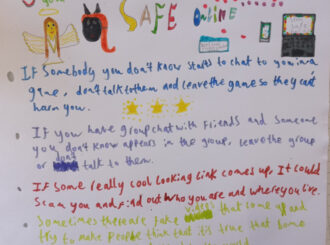 you SAFE online
• IF Somebody you don't know starts to chat to you in a
game, don't talk to them and leave the game so they can't
harm you.
• IF you have group chat with friends and someone
you don't know appears in the group, leave the group
or don't talk to them.
• IF some really cool looking link comes up, It could
scam you and find out who you are and where you live.
• Sometimes there are fake videos that come up and
try to make people think that it's true that some